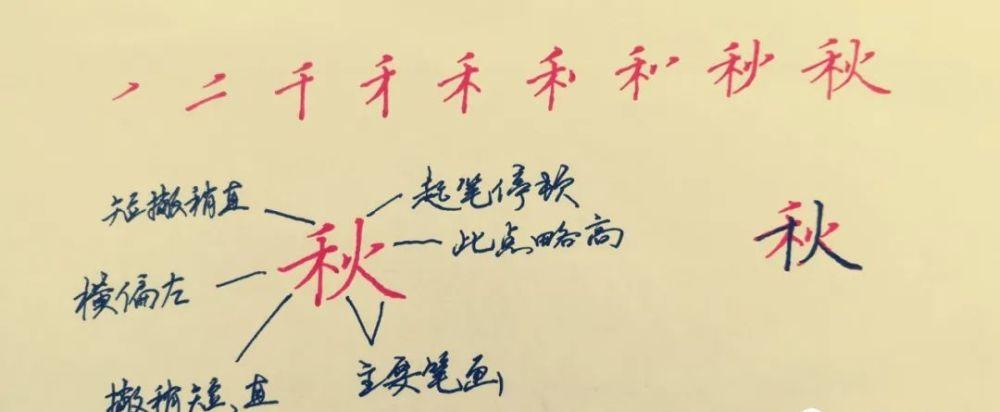 二 千 禾 秋
短撇稍直
起笔停顿
此点略高
秋
秋
横偏左
撇稍短、直
主要笔画